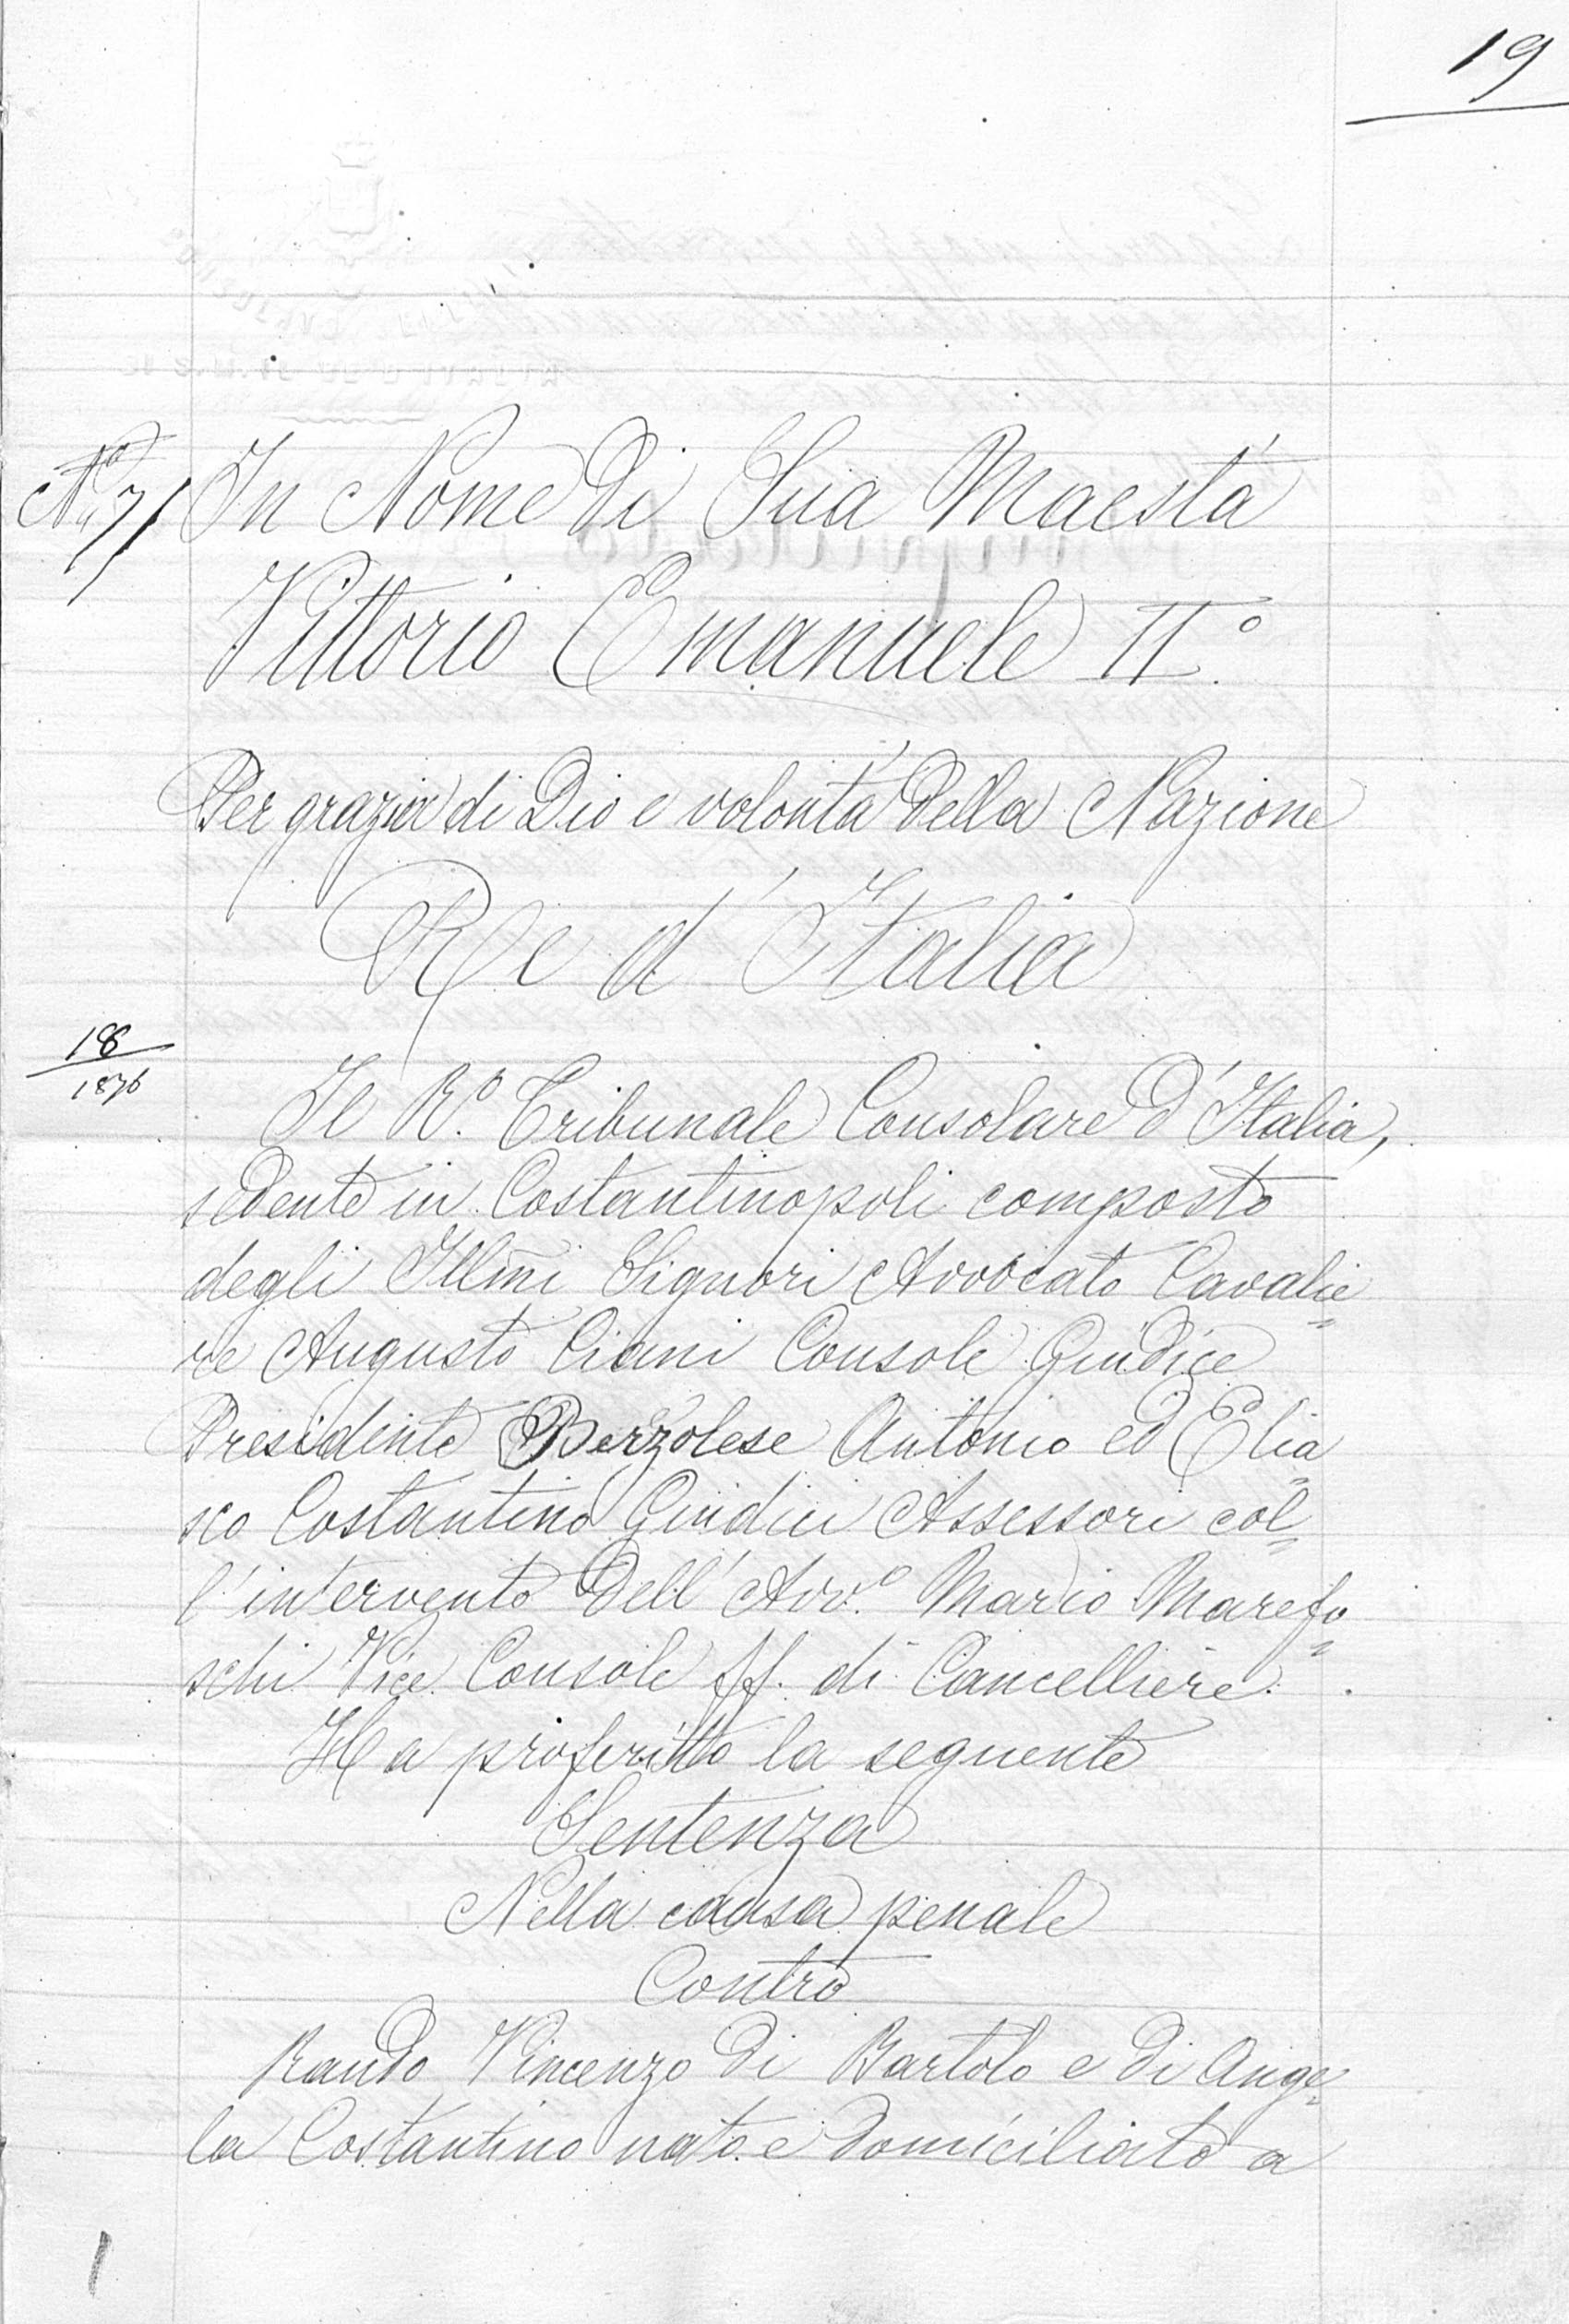 19
N.º 7
In Nome Di Sua Maestà
Vittorio Emanuele II.º
Per grazia di Dio e volontà Della Nazione
Re d'Italia
18
1876
Il R.º Tribunale Consolare D'Italia,
sedente in Costantinopoli composto
degli Illmi Signori Avvocato Cavalie=
re Augusto Ciani Console Giudice
Presidente Berzolese Antonio ed Elia=
sco Costantino Giudici Assessori col=
l'intervento Dell'Avv.º Mario Marefo=
schi Vice Console ff. di Cancelliere.
Ha proferitto la seguente
Sentenza
Nella causa penale
Contro
Rando Vincenzo Di Bartolo e Di Ange=
la Costantino nato e Domiciliato a